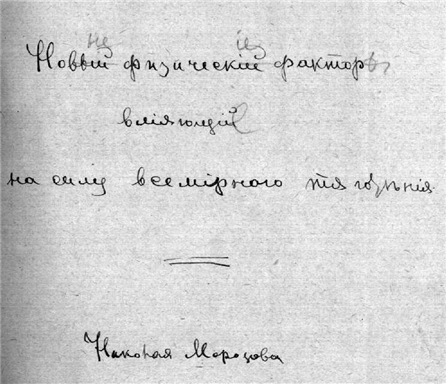 Новый физическій факторъ
вліяющій
на силу всемірного тяготѣнія
Николая Морозова